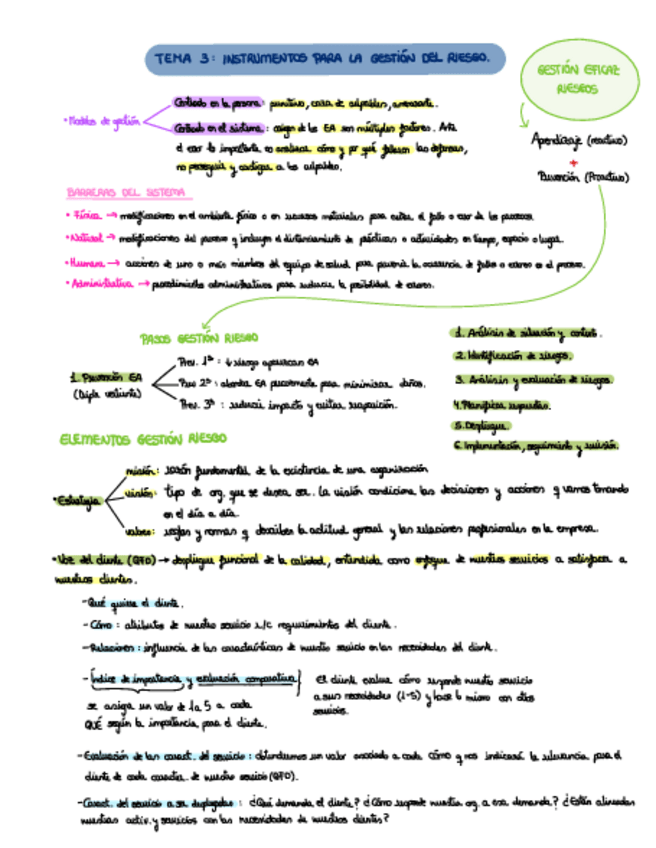 TEMA 3: INSTRUMENTOS PARA LA GESTIÓN DEL RIESGO.
GESTIÓN EFICAZ
RIESGOS
Aprendizaje (reactivo)
+
Prevención (Proactivo)
• Modelos de gestión
Centrado en la persona: punitivo, caza de culpables, amenazante.
Centrado en el sistema: origen de los EA son múltiples factores. Ante
el error lo importante es analizar cómo y por qué fallaron las defensas,
no perseguir y castigar a los culpables.
BARRERAS DEL SISTEMA
• Física → modificaciones en el ambiente físico o en recursos materiales para evitar el fallo o error de los procesos.
• Natural → modificaciones del proceso q incluyen el distanciamiento de prácticas o actividades en tiempo, espacio o lugar.
• Humana → acciones de uno o más miembros del equipo de salud para prevenir la ocurrencia de fallos o errores en el proceso.
• Administrativa → procedimientos administrativos para reducir la posibilidad de errores.
PASOS GESTIÓN RIESGO
1. Prevención EA
(triple vertiente)
Prev. 1ª: ↓ riesgo aparezcan EA
Prev 2ª: abordar EA precozmente para minimizar daños.
Prev. 3ª: reducir impacto y evitar reaparición.
1. Análisis de situación y contexto.
2. Identificación de riesgos.
3. Análisis y evaluación de riesgos.
4. Planificar respuestas.
5. Despliegue.
6. Implementación, seguimiento y revisión.
ELEMENTOS GESTIÓN RIESGO
• Estrategia
misión: razón fundamental de la existencia de una organización
visión: tipo de org. que se desea ser. La visión condiciona las decisiones y acciones q vamos tomando
en el día a día.
valores: reglas y normas q describen la actitud general y las relaciones profesionales en la empresa.
• Voz del cliente (QFD) → despliegue funcional de la calidad, entendida como enfoque de nuestros servicios a satisfacer a
nuestros clientes.
- Qué quiere el cliente.
- Cómo: atributos de nuestro servicio r/c requerimientos del cliente.
- Relaciones: influencia de las características de nuestro servicio en las necesidades del client.
- Índice de importancia y evaluación comparativa
se asigna un valor de 1 a 5 a cada
QUÉ según la importancia para el cliente.
el cliente evalua cómo responde nuestro servicio
a sus necesidades (1-5) y hace lo mismo con otros
servicios.
- Evaluación de las caract. del servicio: obtendremos un valor asociado a cada cómo q nos indicará la relevancia para el
cliente de cada caracter. de nuestro servicio (QFD).
- Caract. del servicio a ser desplegadas: ¿Qué demanda el cliente? ¿Cómo responde nuestra org. a esa demanda? ¿Están alineadas
nuestras activ. y servicios con las necesidades de nuestros clientes?